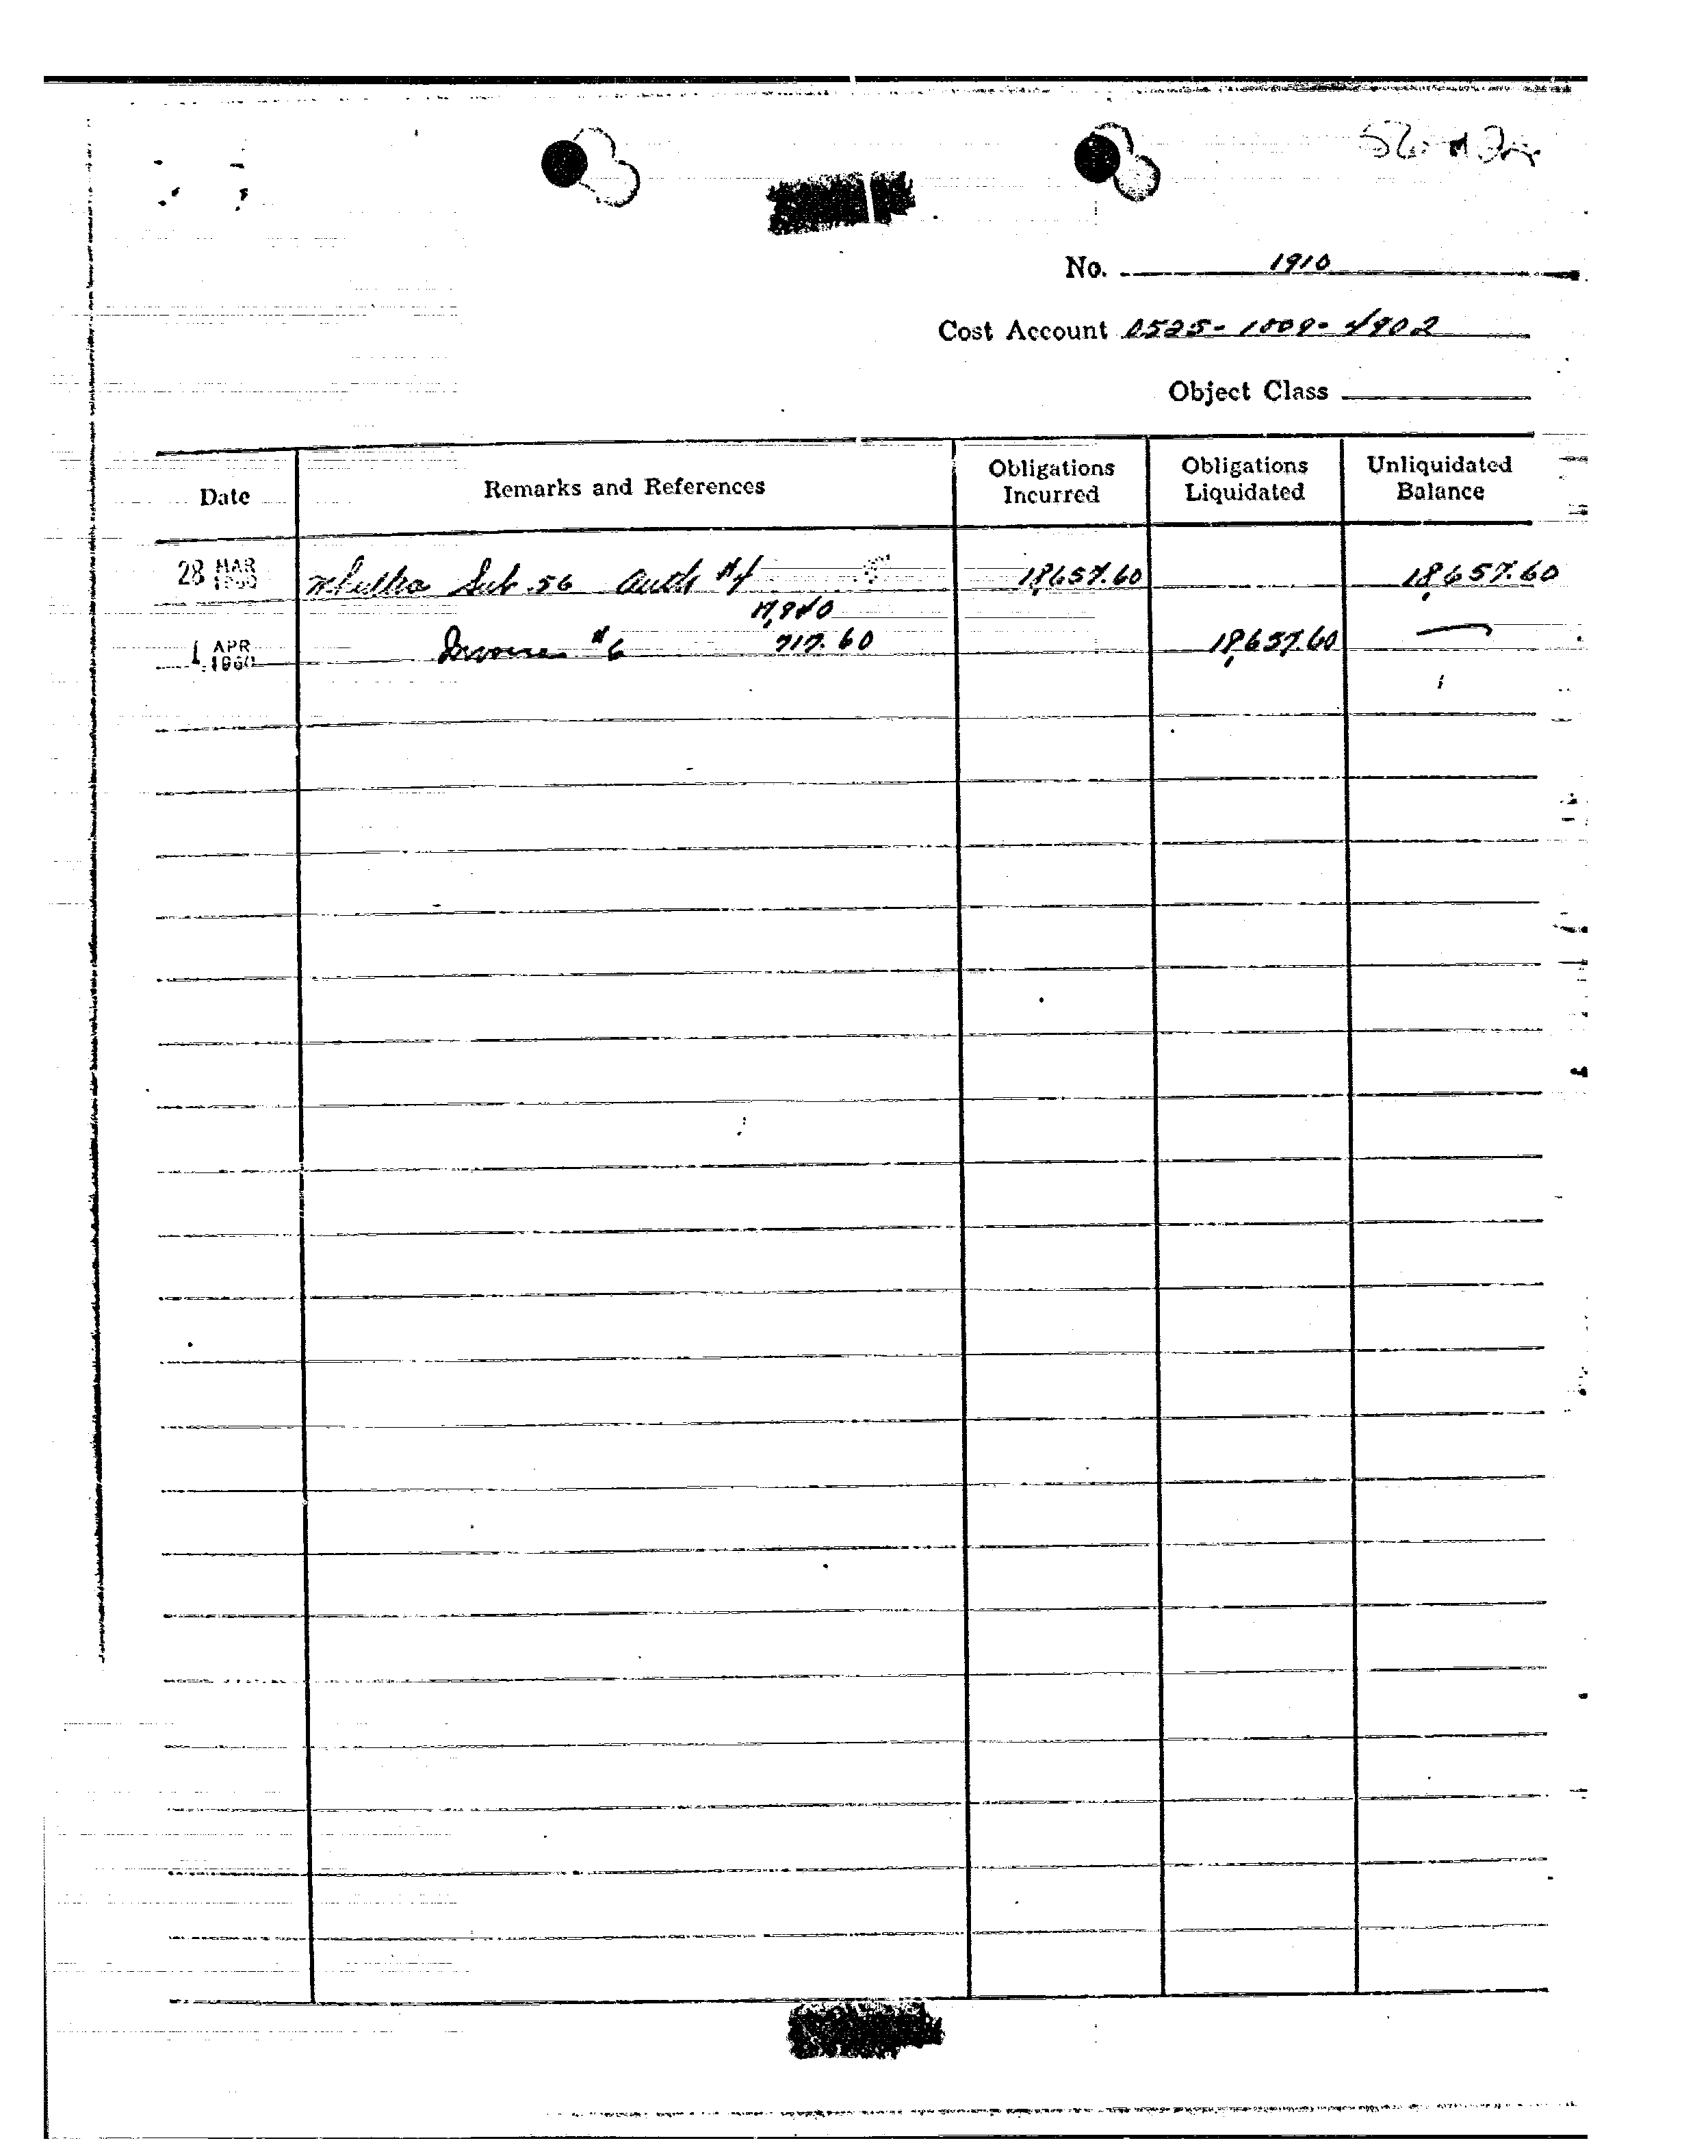 No. 1910
Cost Account 0525-1009-4902
Object Class
Date Remarks and References Obligations Incurred Obligations Liquidated Unliquidated Balance
28 MAR 1960 Mkultra Sub. 56 Auth #4 18,657.60 18,657.60
17,940
1 APR 1960 Invoice #6 717.60 18,657.60 —